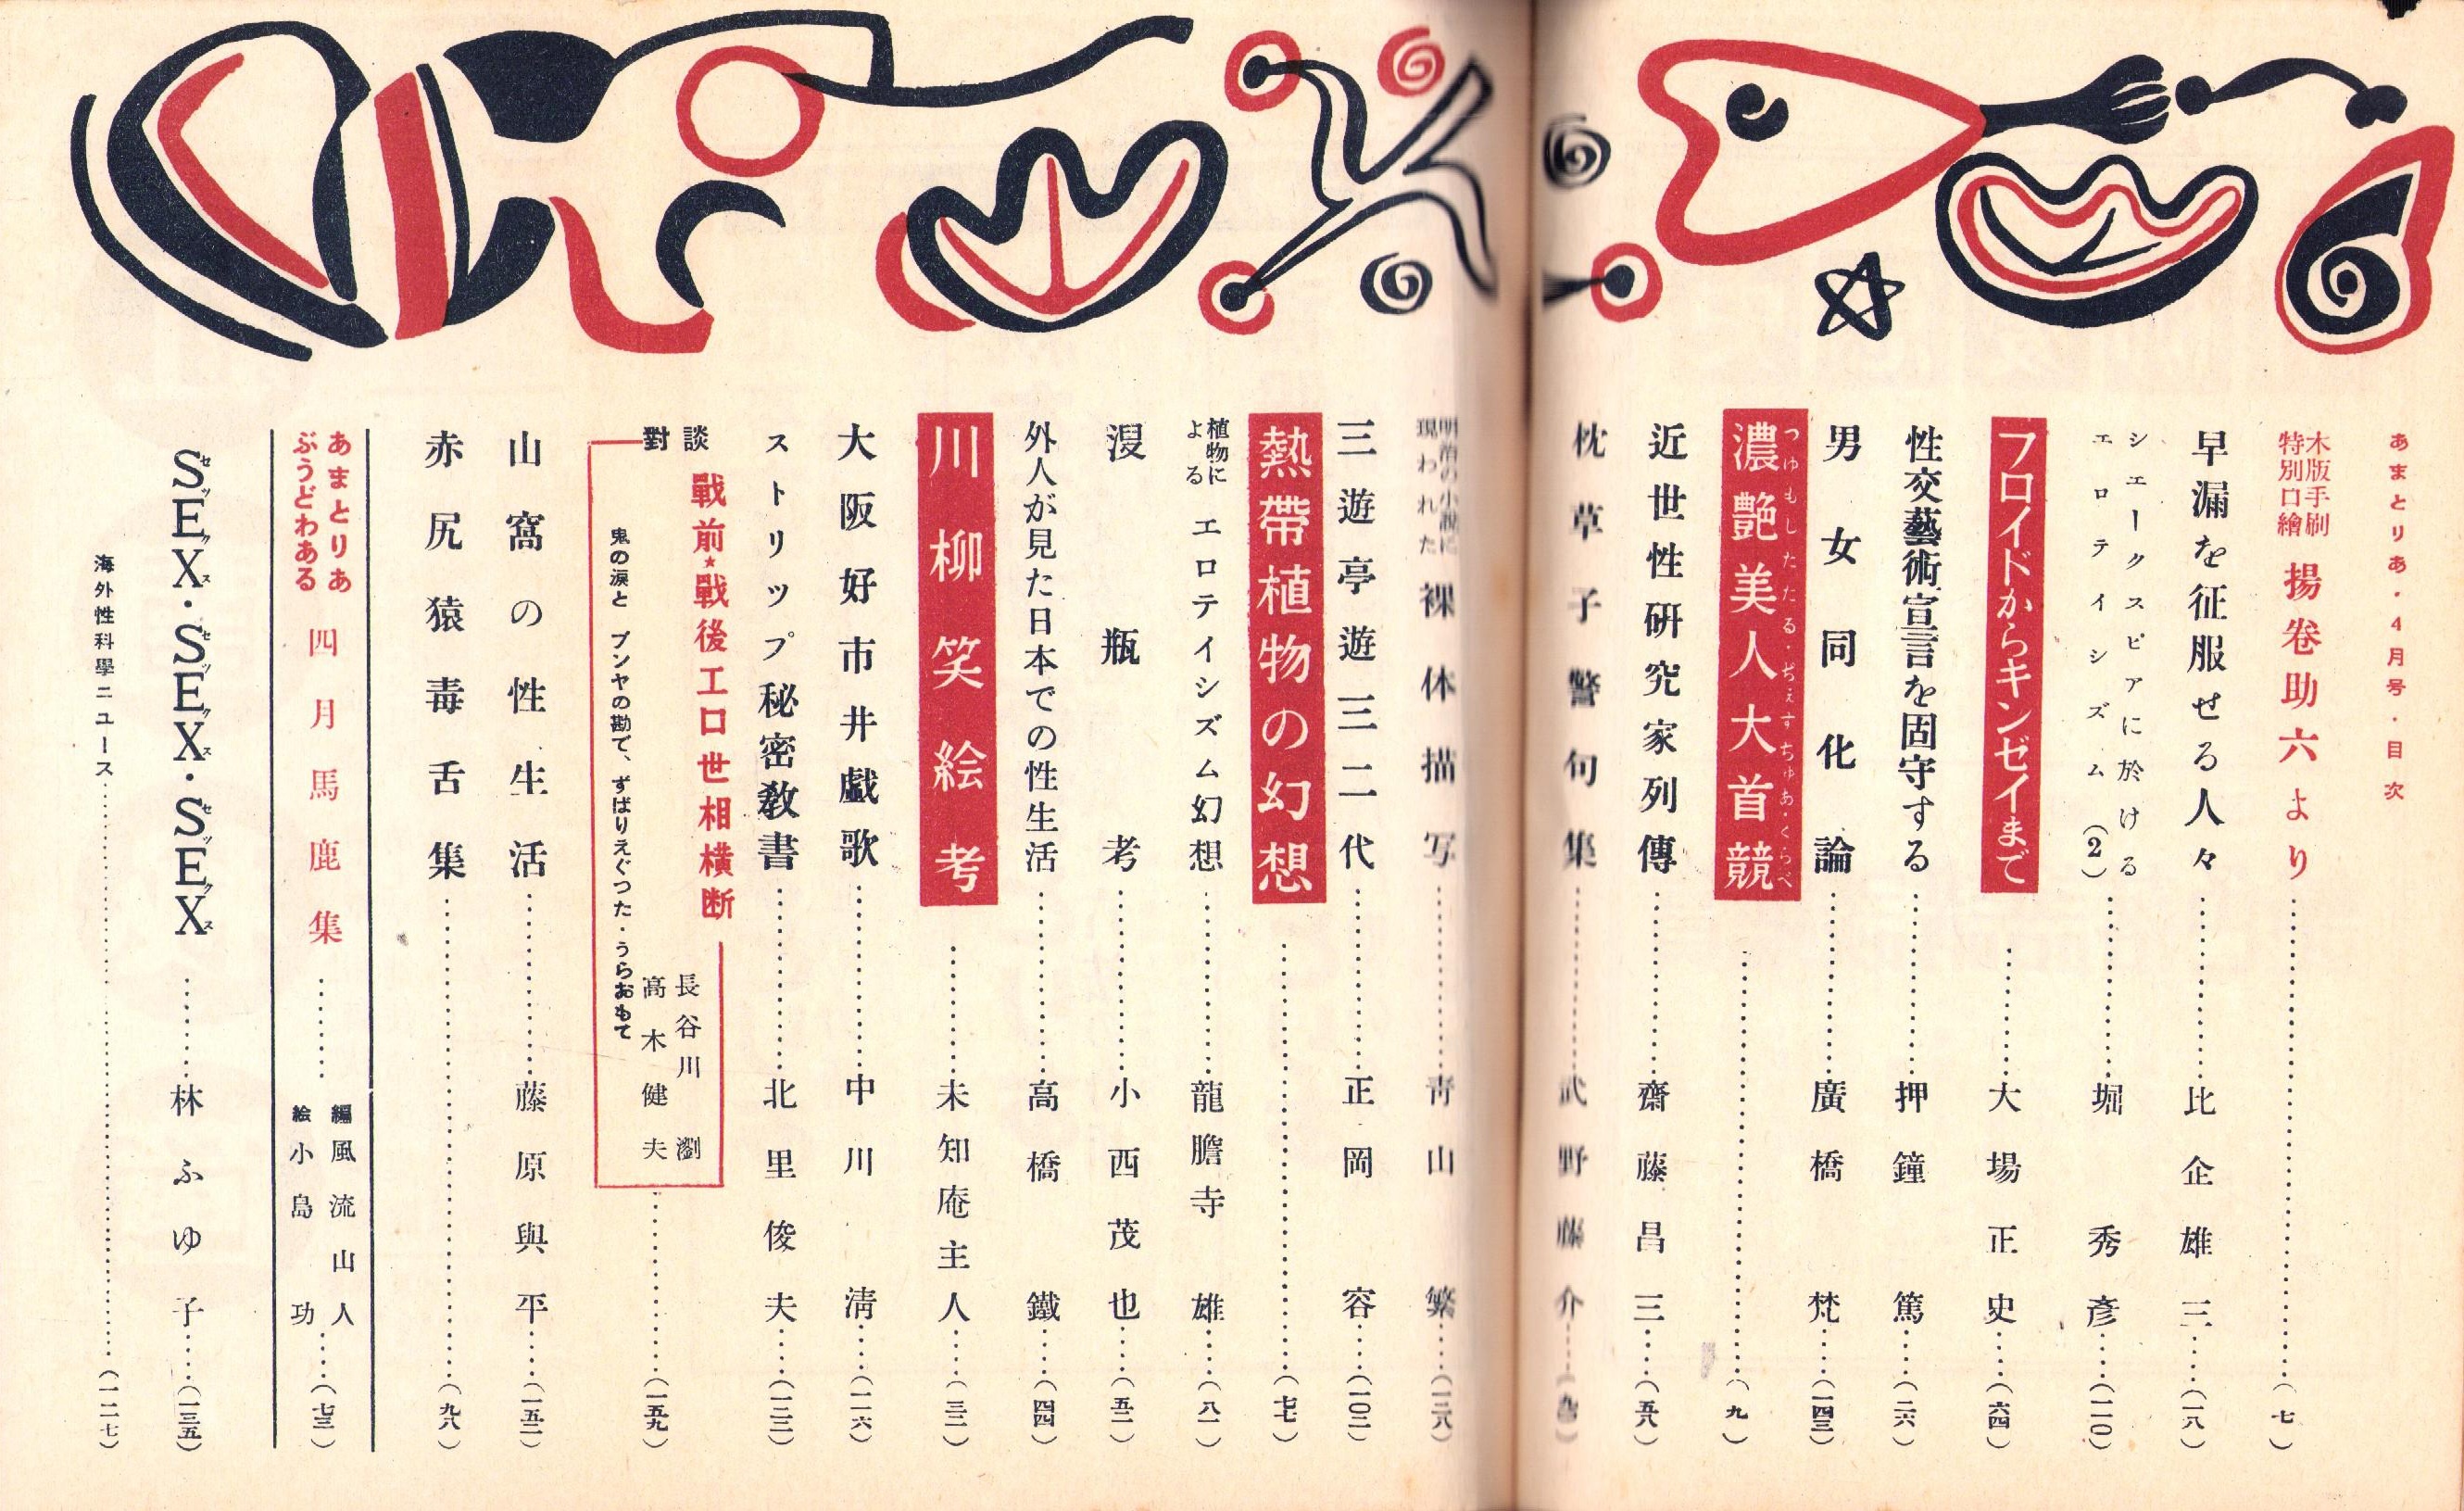 あまとりあ・4月号・目次
木版手刷
特別口繪
揚卷助六より……(七)
早漏を征服せる人々……比企雄三……(一八)
シェークスピアに於ける
エロテイシズム(2)……堀秀彦……(一一〇)
フロイドからキンゼイまで……大場正史……(六四)
性交藝術宣言を固守する……押鐘篤……(二六)
男女同化論……廣橋梵……(一四三)
つゆもしたたる・ぢぇすちゅあ・くらべ
濃艶美人大首競……(九)
近世性研究家列傳……齋藤昌三……(五八)
枕草子警句集……武野藤介
明治の小説に
現われた
裸体描写……青山繁……(一三八)
三遊亭遊三二代……正岡容……(一〇二)
熱帶植物の幻想……(七七)
植物に
よる
エロテイシズム幻想……龍膽寺雄……(八一)
溲瓶考……小西茂也……(五二)
外人が見た日本での性生活……高橋鐵……(四四)
川柳笑絵考……未知庵主人……(三二)
大阪好市井戯歌……中川清……(一一六)
ストリップ秘密教書……北里俊夫……(一二三)
對談
戰前★戰後エロ世相横断
長谷川瀏
高木健夫
鬼の涙と ブンヤの勘で、ずばりえぐつた・うらおもて
……(一五九)
山窩の性生活……藤原與平……(一五二)
赤尻猿毒舌集……(九八)
あまとりあ
ぶうどわある
四月馬鹿集……
編 風流山人
絵 小島功……(七三)
SEX・SEX・SEX……林ふゆ子……(一三五)
セックス セックス セックス
海外性科學ニュース……(一二七)